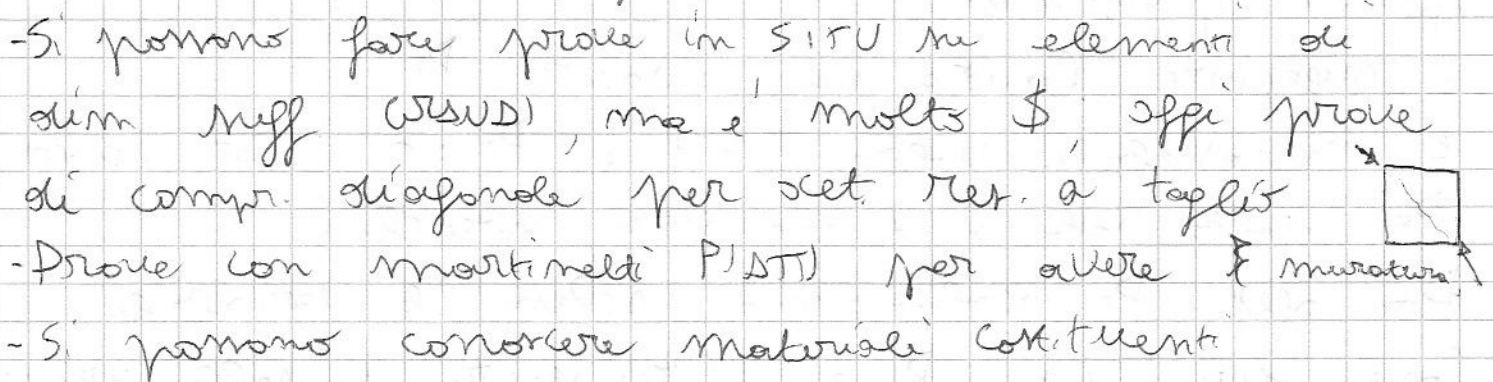 -Si possono fare prove in SITU su elementi di
dim suff , ma è molto $, oggi prove
di compr. diagonale per det. res. a taglio
-Prove con martinetti PIATTI per avere muratura
-Si possono conoscere materiali costituenti